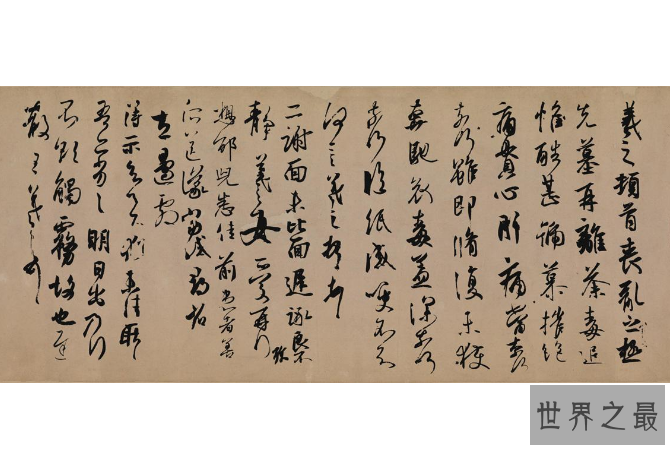 羲之頓首喪亂之極
先墓再離荼毒追
惟酷甚號慕摧絕
痛貫心肝痛當奈何
奈何雖即脩復未獲
奔馳哀毒益深奈何
奈何臨紙感哽不知
何言羲之頓首頓首
二謝面未比面遲詠良不
靜羲之女愛再拜
想邰兒悉佳前患者善
所送議當試尋省
左邊劇
得示知足下猶未佳耿耿
吾亦劣劣明日出乃行
不欲觸霧故也遲
散王羲之頓首
世界之最